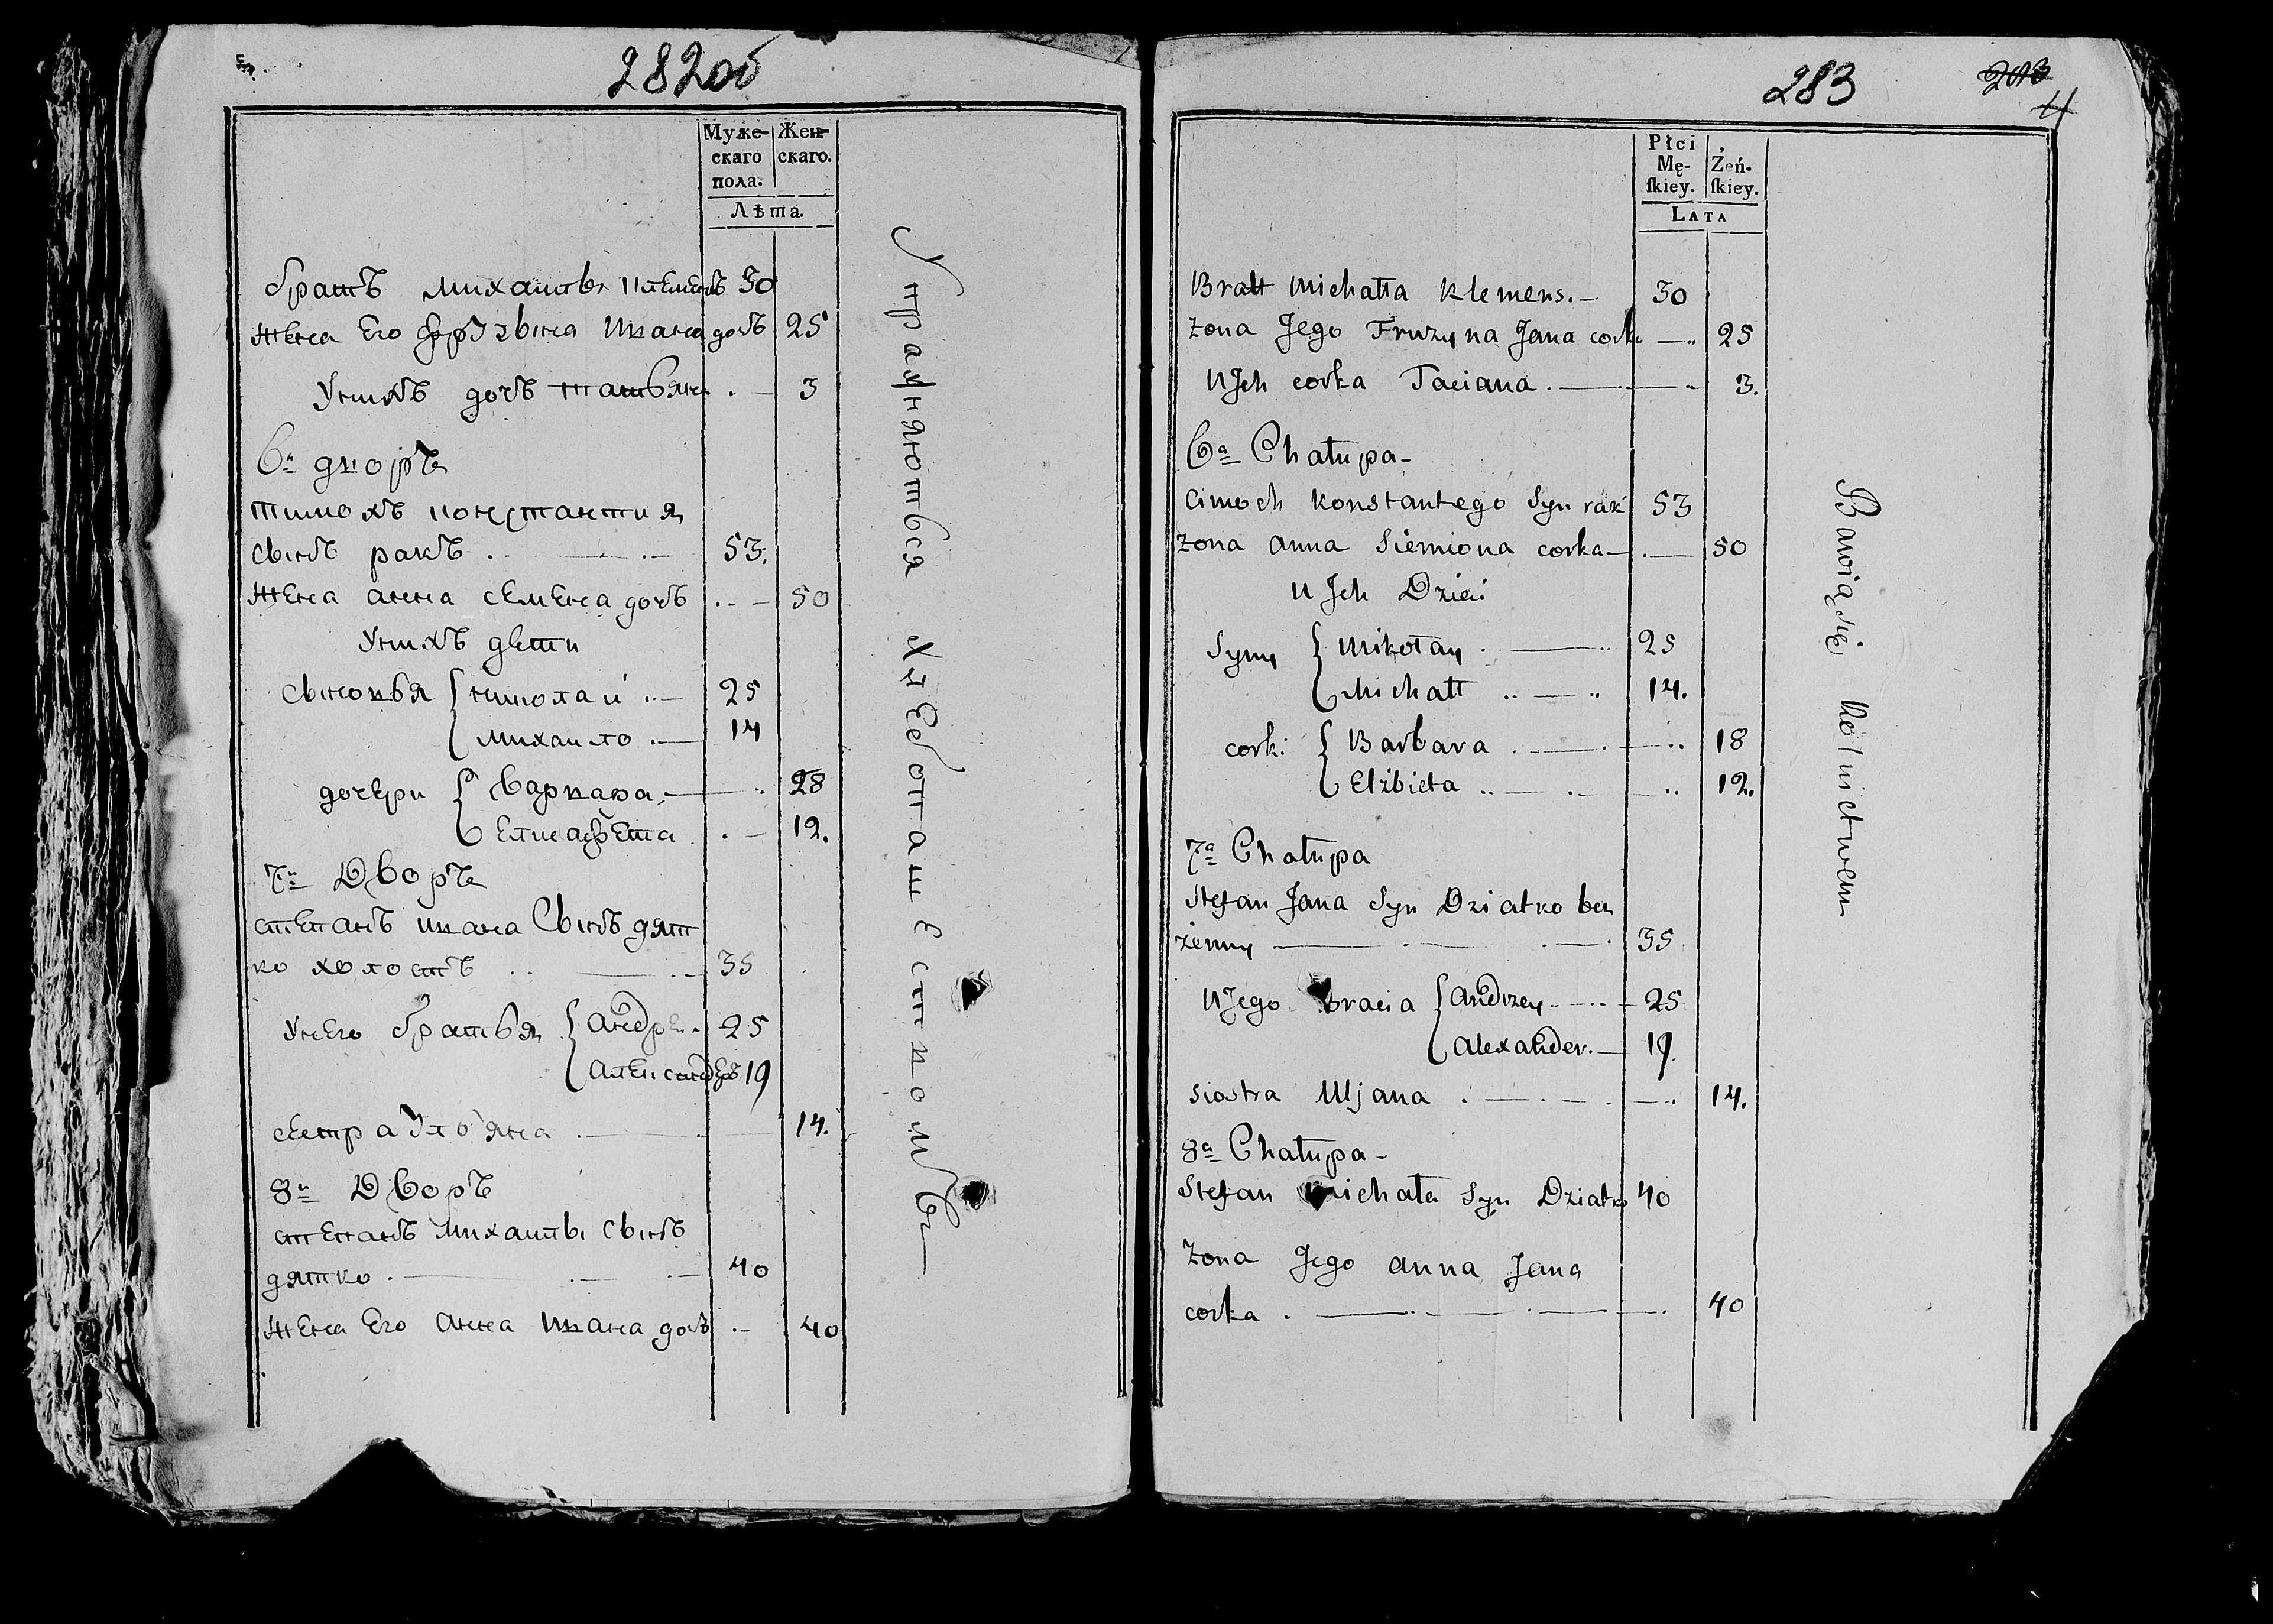 282об
Муже-
скаго
пола.
Жен-
скаго.
Лѣта.
братъ михаилы клеменсъ 30
жена Его фрузына Ивана дочь 25
Унихъ дочь татьяна . — 3
6й дворъ
тимохъ константия
сынъ ракъ . — 53.
жена анна семена дочь .. — 50
Унихъ дети
сыновья { николай .. — 25
михаило . — 14
дочери { Варвара. — .. 28
Елисафета . — 12.
7й Дворъ
степанъ ивана Сынъ дят
ко холостъ .. — . — 35
Унего братья { андрей . 25
александеръ 19
сестра Ульяна . — . 14.
8й Дворъ
степанъ михаилы сынъ
дятко . — . — . — 40
жена Его анна Ивана дочь .. — 40
Упражняются Хлебопашествомъ
283
203
4
Płci
Mę-
ſkiey.
Żeń-
ſkiey.
LATA
Bratt Michałła Klemens. — 30
żona Jego Fruzyna Jana corka — .. 25
U Jch corka Taciana . — - 3.
6a Chałupa -
Cimoch Konstantego Syn rak 53
żona anna Siemiona corka — . — 50
U Jch Dzieci
Syny { Mikołay . — .. 25
Michałł .. — .. 14.
corki { Barbara . — . — .. 18
Elżbieta .. — . — .. 12.
7a Chałupa
Stefan Jana Syn Dziatko bez
żenny — . — . 35
U Jego Bracia { andrzey - — .. - 25
alexander. — 19.
siostra Uljana . — . — . — .. 14.
8a Chałupa -
Stefan Michała Syn Dziatko 40
Żona Jego anna Jana
corka . — . — . — . 40
Bawią się Rolnictwem